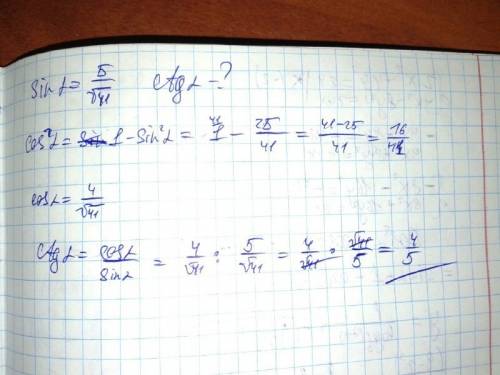 sin α = 5/√41   ctg α - ?
cos²α = ~~sin~~ 1 - sin²α = 1 - 25/41 = (41-25)/41 = 16/41
cos α = 4/√41
ctg α = cos α/sin α = 4/√41 : 5/√41 = 4/√41 · √41/5 = 4/5